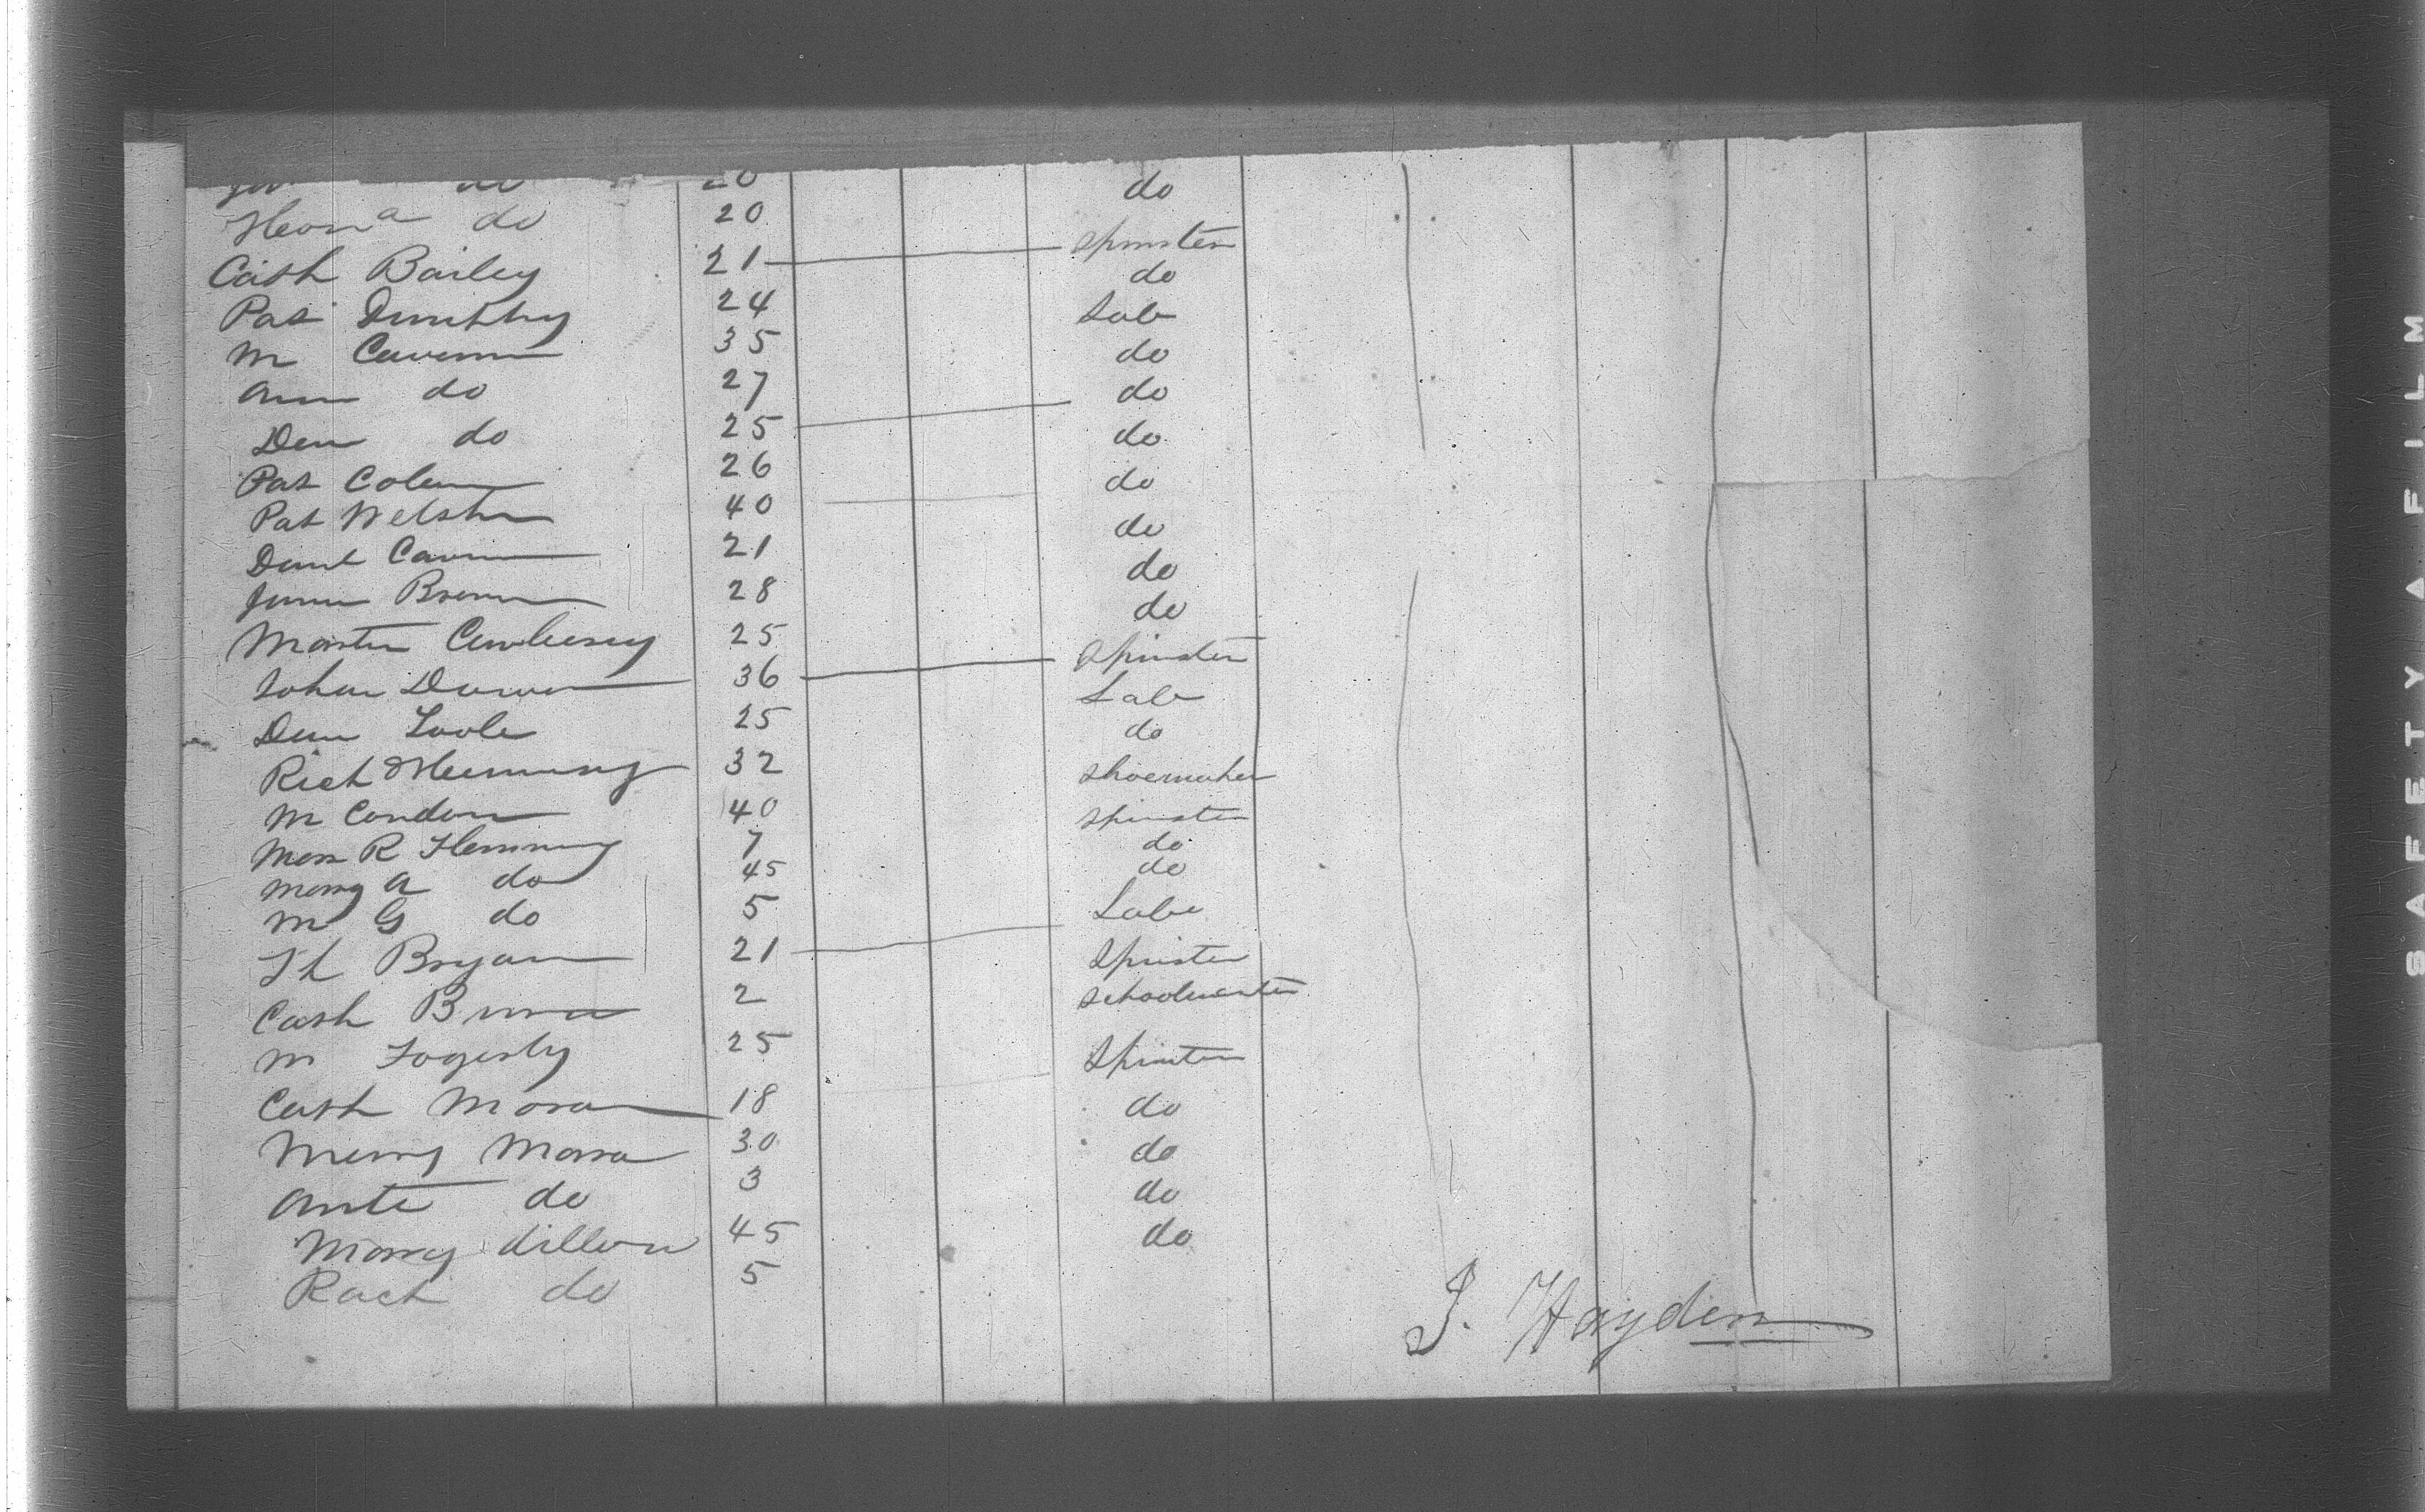 do 20 do
Hona do 20
Cath Bailey 21 Spinster
Pat Dunphy 24 do
M Caven 35 Lab
Ann do 27 do
Den do 25 do
Pat Colem 26 do
Pat Welsh 40 do
Danl Caven 21 do
James Brenn 28 do
Martin 25 do
Johan 36 Spinster
Den Toole 25 Lab
Rich Flemming 32 do
M Condon 40 Shoemaker
R Flemming 7 Spinster
Mary A do 45 do
M G do 5 do
Th Bryan 21 Labr
Cath 2 Spinster
M Fogerty 25 Schoolmaster
Cath Moran 18 Spinster
Mary Moran 30 do
do 3 do
Mary dillon 45 do
Rach do 5 do
J. Hayden
SAFETY A FILM